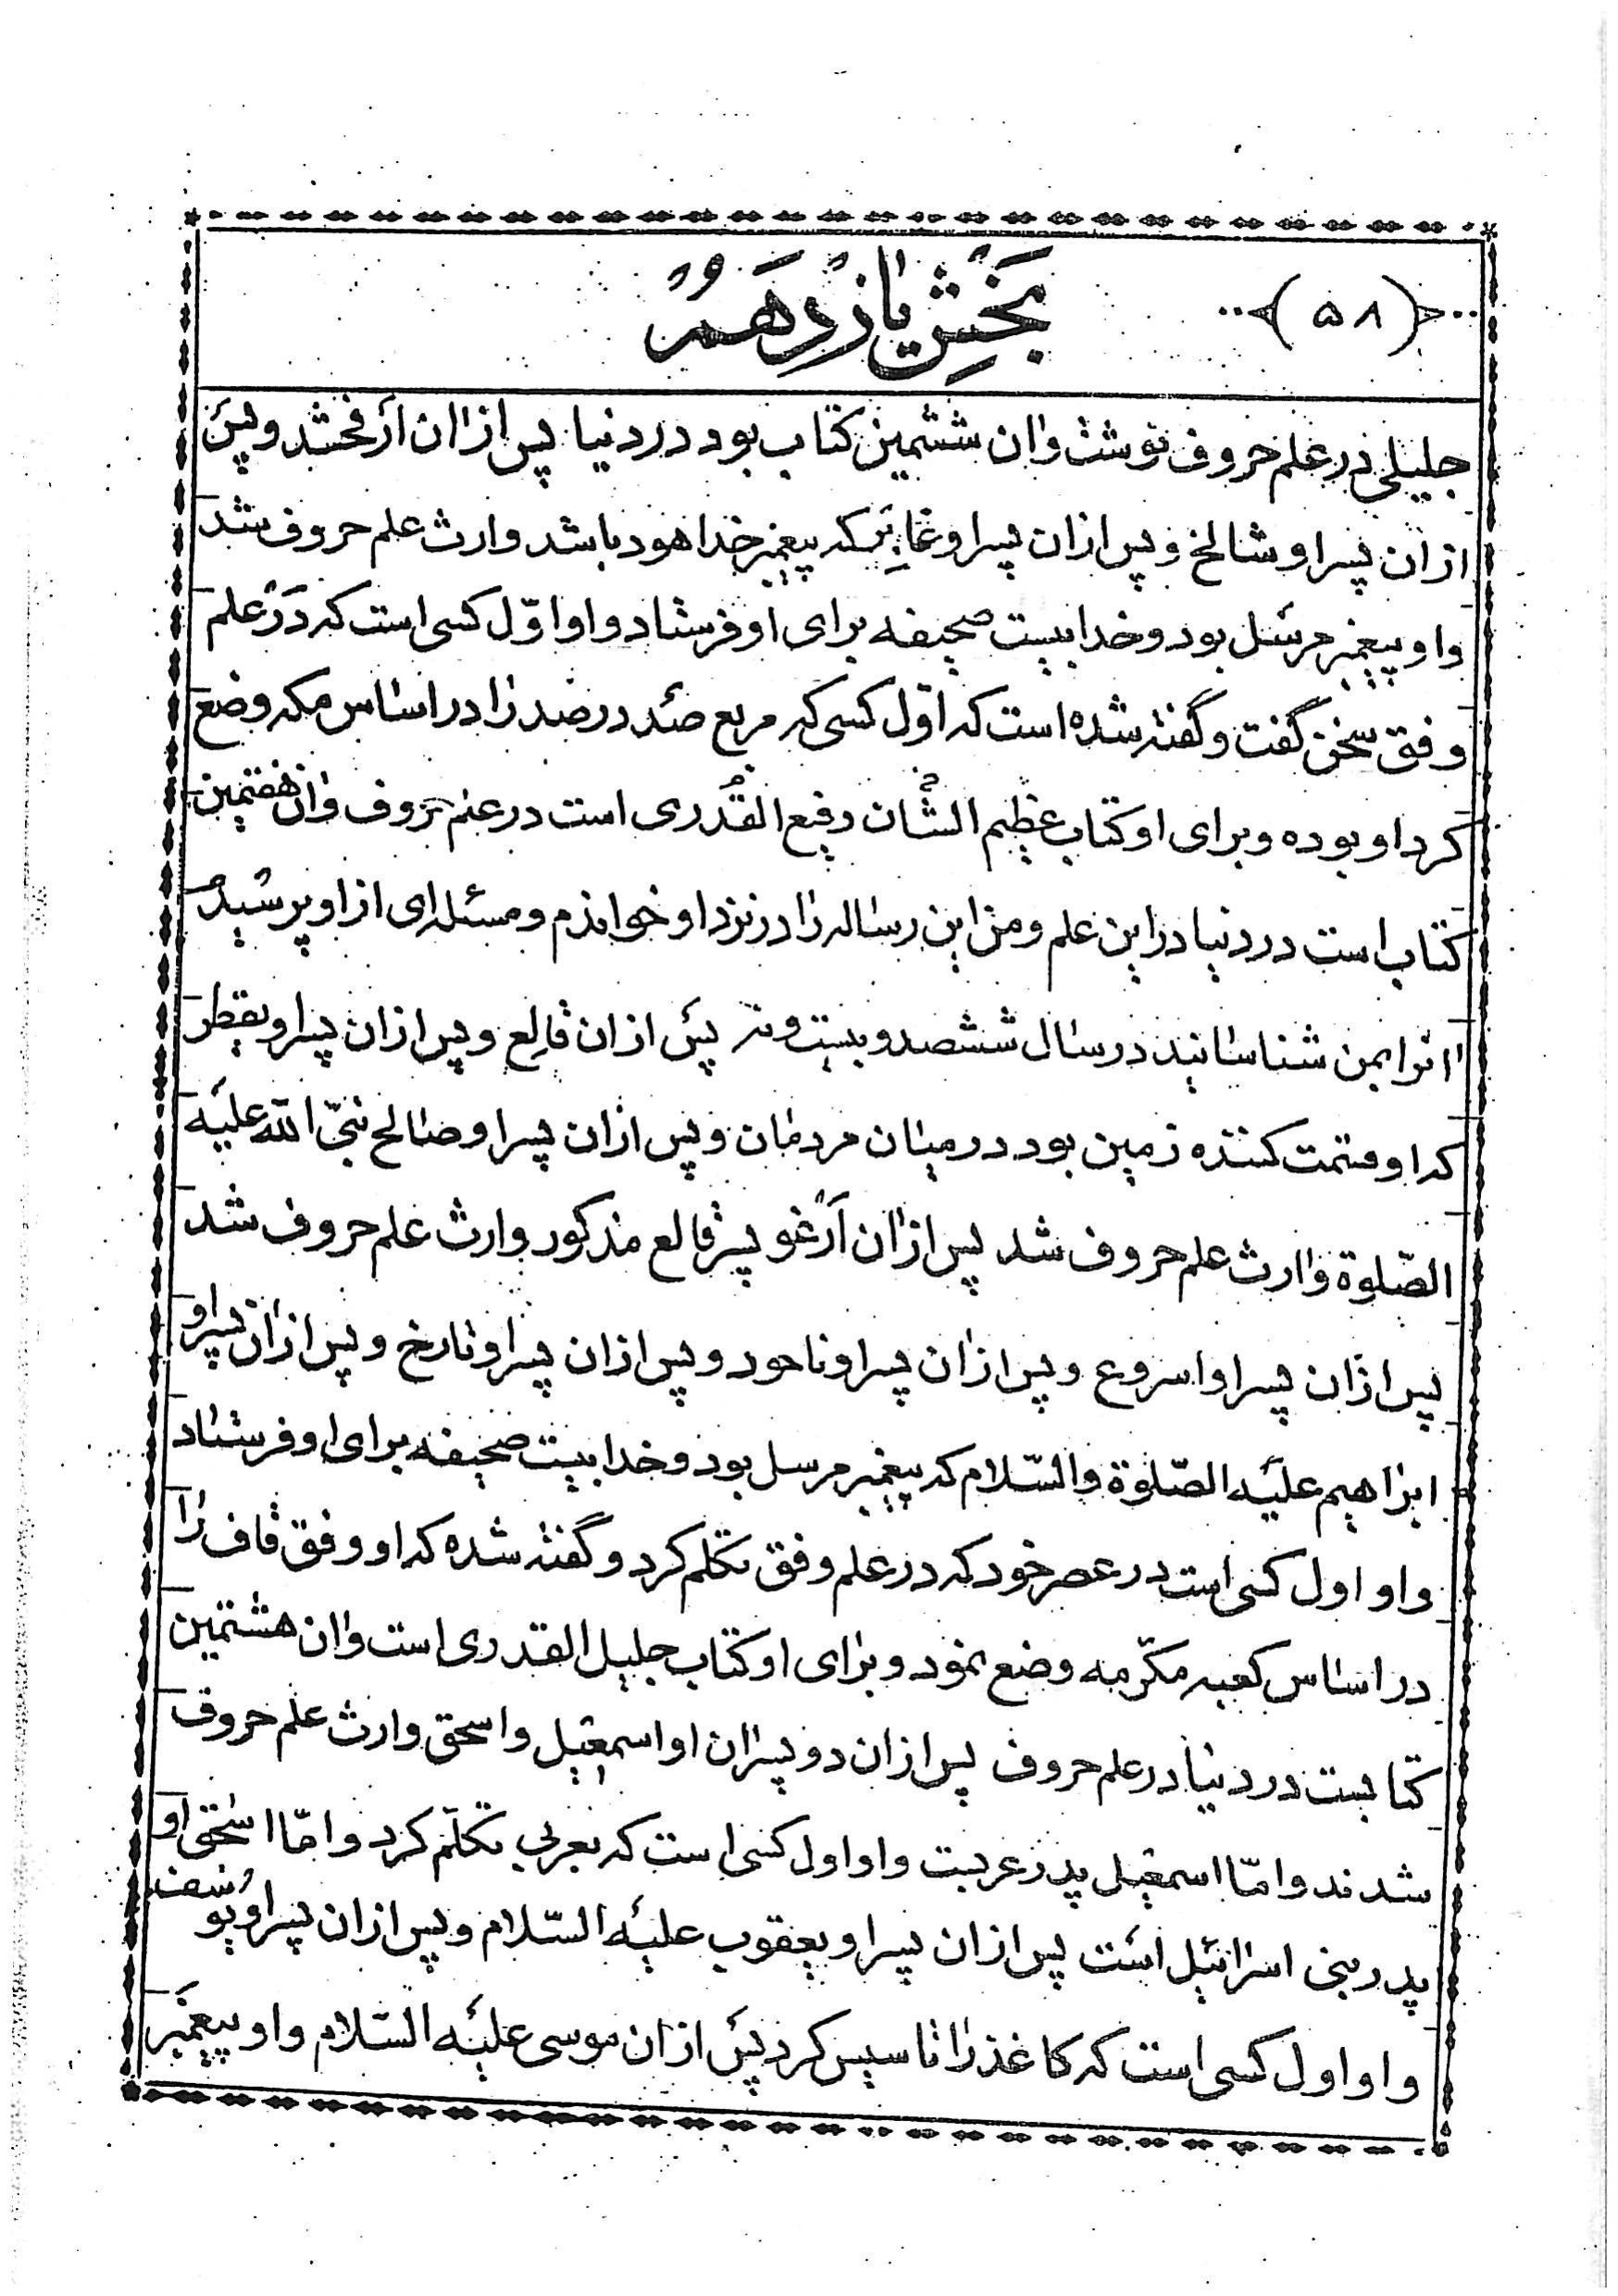 بخش یازدهم
﴿۵۸﴾
جلیلی در علم حروف نوشت و ان ششمین کتاب بود در دنیا پس از ان ارفحشد و پس
از ان پسر او شالخ و پس از ان پسر او عابر که پیغمبر خدا هود باشد وارث علم حروف شد
و او پیغمبر مرسل بود و خدا بیست صحیفه برای او فرستاد و او اوّل کسی است که در علم
وفق سخن گفت و گفته شده است که اول کسی که مربع صد در صد را در اساس مکه وضع
کرد او بوده و برای او کتاب عظیم الشان رفیع القدری است در علم حروف و ان هفتمین
کتاب است در دنیا در این علم و من این رساله را در نزد او خواندم و مسئله ای از او پرسیدم
انرا بمن شناسانید در سال ششصد و بیست و نه پس از ان فالع و پس از ان پسر او یقطر
که او قسمت کننده زمین بود در میان مردمان و پس از ان پسر او صالح نبیّ الله علیه
الصّلوة وارث علم حروف شد پس از ان ارغو پسر فالع مذکور وارث علم حروف شد
پس از ان پسر او اسروع و پس از ان پسر او ناحور و پس از ان پسر او تارخ و پس از ان پسر او
ابراهیم علیه الصّلوة والسّلام که پیغمبر مرسل بود و خدا بیست صحیفه برای او فرستاد
و او اول کسی است در عصر خود که در علم وفق تکلم کرد و گفته شده که او وفق قاف را
در اساس کعبه مکرّمه وضع نمود و برای او کتاب جلیل القدری است و ان هشتمین
کتابست در دنیا در علم حروف پس از ان دو پسران او اسمعیل و اسحق وارث علم حروف
شدند و امّا اسمعیل پدر عربست و او اول کسی است که بعربی تکلّم کرد و امّا اسحق او
پدر بنی اسرائیل است پس از ان پسر او یعقوب علیه السّلام و پس از ان پسر او یوسف
و او اول کسی است که کاغذ را تاسیس کرد پس از ان موسی علیه السّلام و او پیغمبر